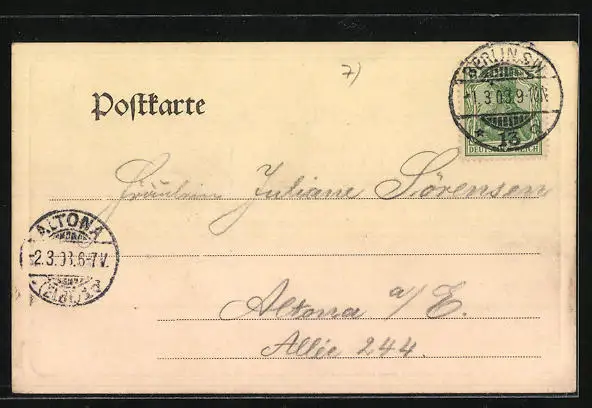 7)
BERLIN S.W.
1.3.03.9-10V.
* 13 a
DEUTSCHES REICH
Postkarte
Fräulein Juliane Sörensen
ALTONA
2.3.03.6-7V.
(ELBE)
Altona a/E.
Allée 244.